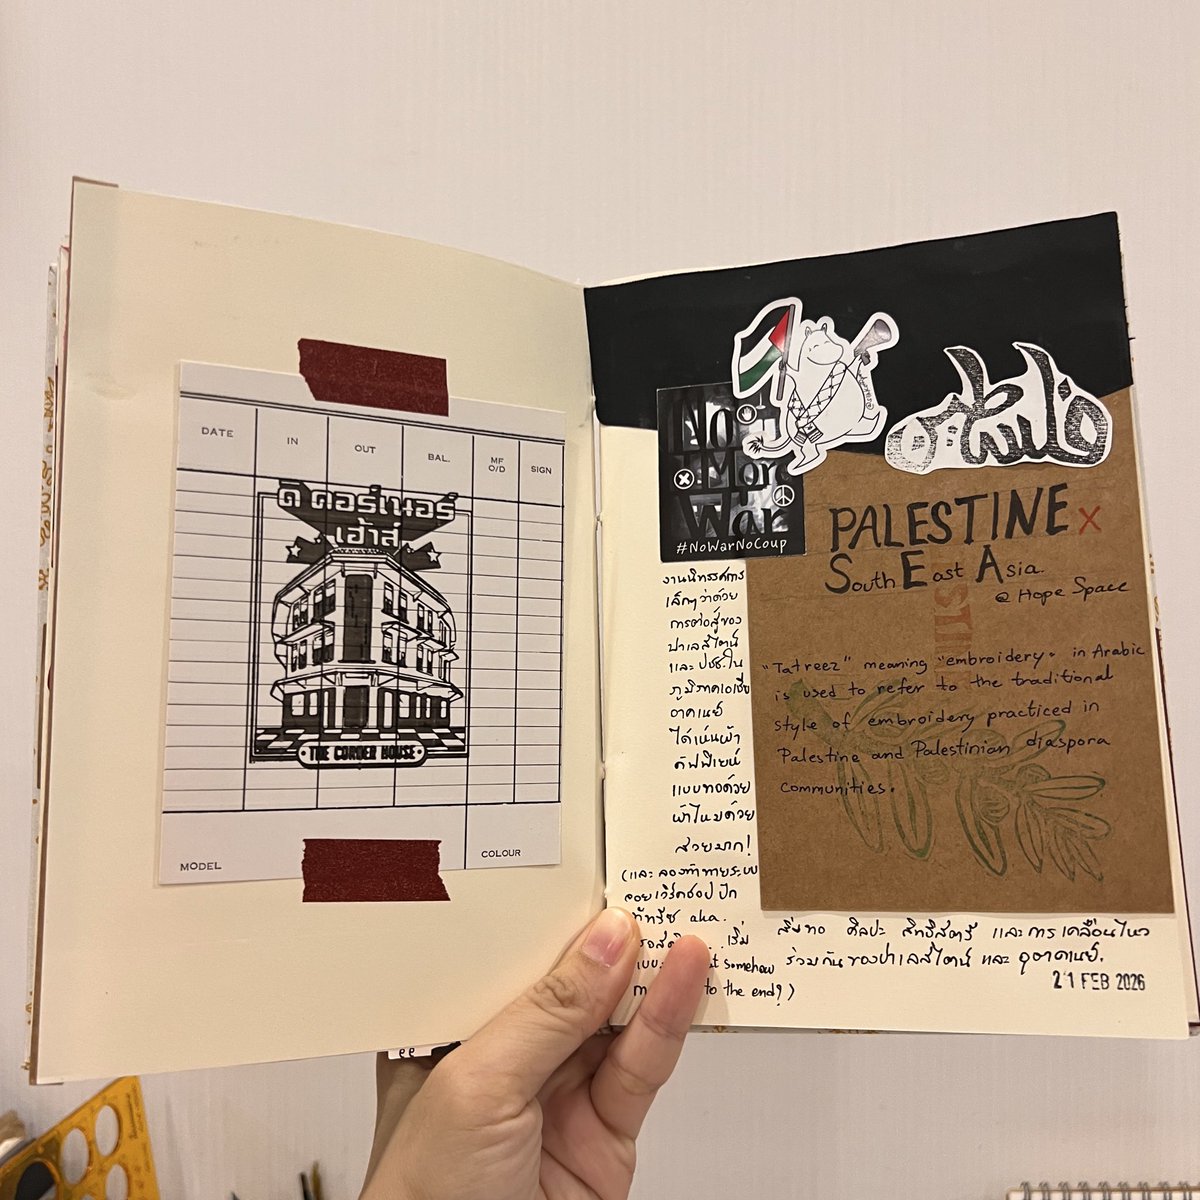 DATE
IN
OUT
BAL.
MF
O/D
SIGN
ดิ คอร์เนอร์
เฮ้าส์
THE CORNER HOUSE
MODEL
COLOUR
No
More
War
#NoWarNoCoup
PALESTINE x
South East Asia.
@ Hope Space
"Tatreez" meaning "embroidery" in Arabic
is used to refer to the traditional
style of embroidery practiced in
Palestine and Palestinian diaspora
communities.
งานนิทรรศการ
เล็กๆ ว่าด้วย
การต่อสู้ของ
ปาเลสไตน์
และ ปชช. ใน
ภูมิภาคเอเชีย
อาคเนย์
ได้เห็นผ้า
คัฟฟีเยห์
แบบทอด้วย
ผ้าไหมด้วย
สวยมาก!
(และ ลองท้าทายระบบ
ลอยเวิร์คชอป ปัก
ทัทรีซ aka.
เริ่ม
somehow
to the end?)
สิ่งทอ ศิลปะ สิทธิสตรี และการเคลื่อนไหว
ร่วมกันของปาเลสไตน์ และ อุษาคเนย์.
21 FEB 2026